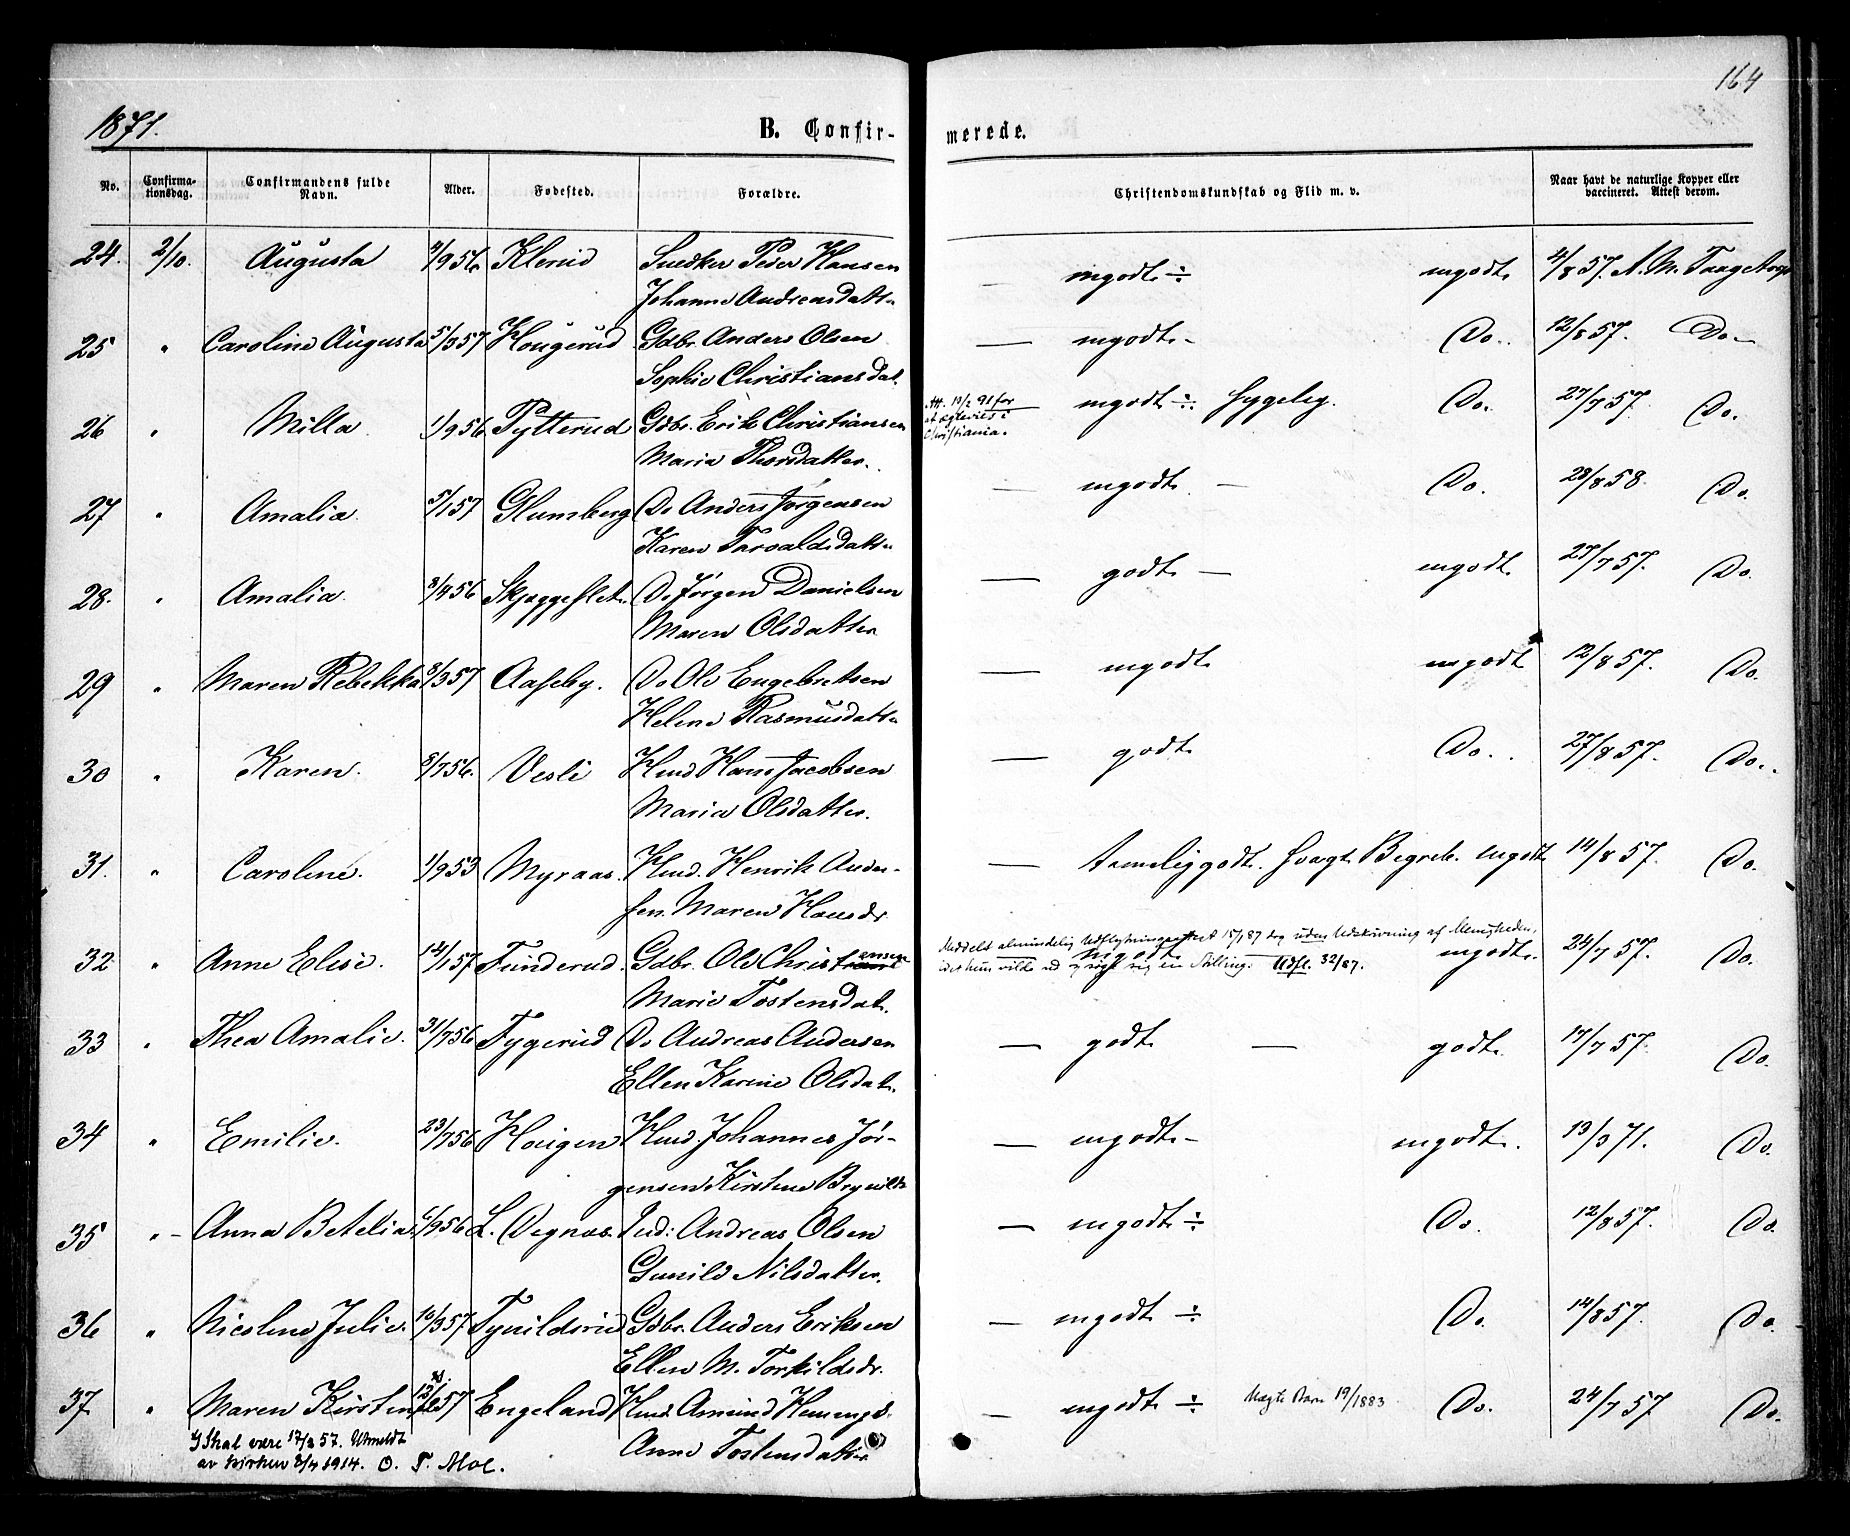 164
1871.
B. Confir-
merede.
No.
Confirma-
tionsdag.
Confirmandens fulde
Navn.
Alder.
Fødested.
Forældre.
Christendomskundskab og Flid m. v.
Naar havt de naturlige Kopper eller
vaccineret. Attest derom.
24. 2/10. Augusta 4/9 56. Klerud Snedker Peder Hansen — mgodt ÷ mgodt 4/8 57. A. M.
Johanne Andreasdatter
25 " Caroline Augusta 5/3 57 Hougerud Gdbr. Anders Olsen — mgodt - Do. 12/8 57. Do
Sophie Christiansdat.
26 " Milla 1/9 56 Pytterud Gdbr. Erik Christiansen Att. 10/2 91 for — mgodt ÷ sygelig. Do. 27/7 57. Do.
Maria Thorsdatter. at ægtevies i
Christiania.
27 " Amalia. 5/1 57 Glumberg Do Anders Jørgensen — mgodt — Do. 28/8 58. Do.
Karen Torvaldsdatter
28. " Amalia. 3/9 56 Skjæggeslet. Do Jørgen Danielsen — godt — mgodt 27/7 57. Do.
Maren Olsdatter
29 " Maren Rebekka 8/3 57 Aaseby. Do Ole Engebretsen — mgodt mgodt 12/8 57. Do.
Helene Rasmusdatter
30 " Karen. 8/7 56. Vesli Hmd Hans Jacobsen — godt Do. 27/8 57. Do.
Maria Olsdatter.
31. " Caroline. 1/9 53 Myraas. Hmd. Henrik Ander- — temelig godt. svagt Begreb. mgodt 14/8 57. Do.
sen. Maren Hansdr
Meddelt almindelig Udflytningsattest 15/1 87 dog uden Udskrivning af Menigheden,
32 " Anne Elise. 14/1 57 Funderud. Gdbr. Ole Christiansen mgodt mgodt. 24/7 57. Do.
idet hun vilde ud og søge sig en Stilling. Udfl. 32/87.
Marie Tostensdat.
33 " Thea Amalie. 31/7 56 Tygerud Do Andreas Andersen — godt — godt. 17/7 57. Do.
Ellen Karine Olsdat.
34 " Emilie. 23/7 56 Haugen Hmd Johannes Jør- — mgodt - mgodt. 13/3 71. Do.
gensen Kirstine
35 " Anna Betelia 6/9 56 L. Degnæs. Ind: Andreas Olsen — mgodt ÷ Do. 12/8 57. Do.
Gunild Nilsdatter.
36 " Nicoline Julie. 10/3 57 Gdbr. Anders Eriksen — mgodt ÷ Do. 14/8 57. Do.
Ellen M. Torkildsdr.
37 " Maren Kirstine 57 Engeland Hmd. Amund — mgodt ÷ Uægte Barn 19/1883 Do. 24/7 57 Do.
Anne Tostensdatter
Skal være 17/2 57. Utmeldt
av kirken 8/4 1914. O. T. Moe.